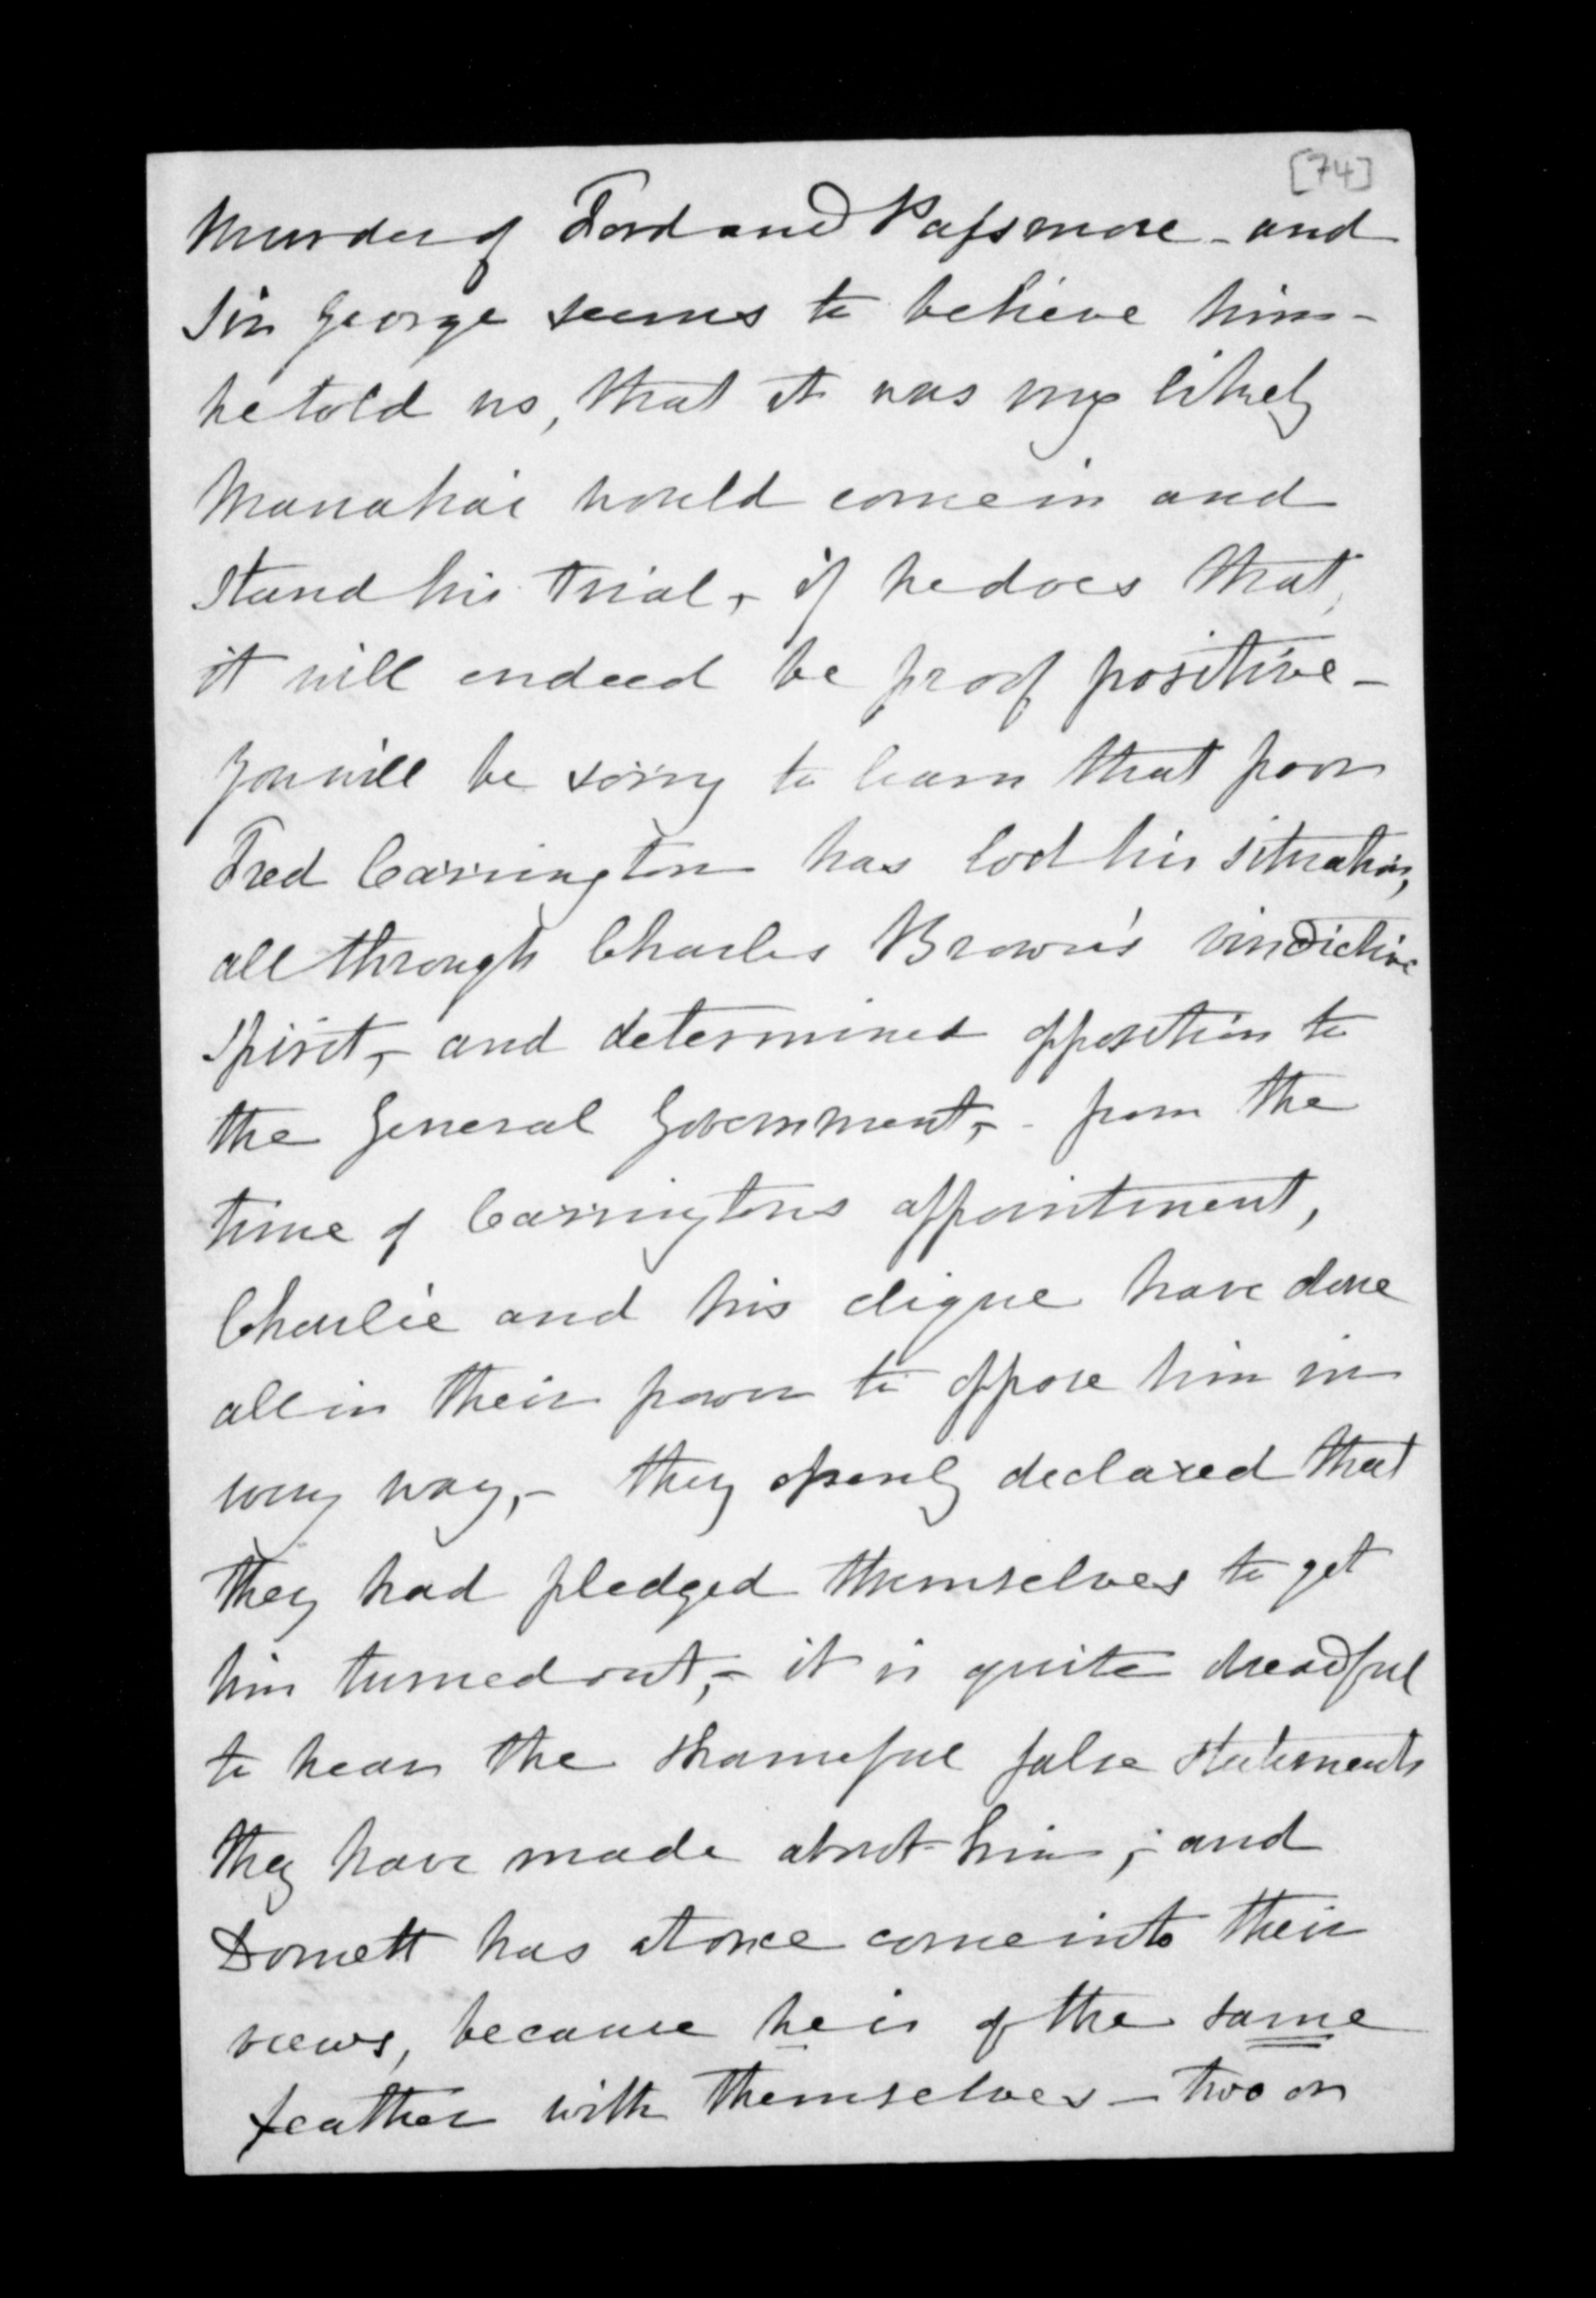 [74]
Murder of Ford and Passmore - and
Sir George seems to believe him -
he told us, that it was very likely
Manahai would come in and
stand his trial, - if he does that,
it will indeed be proof positive -
you will be sorry to learn that poor
Fred Carrington has lost his situation,
all through Charles Brown's vindictive
spirit, - and determined opposition to
the General Government, - from the
time of Carringtons appointment,
Charlie and his clique have done
all in their power to oppose him in
every way, - they openly declared that
they had pledged themselves to get
him turned out, - it is quite dreadful
to hear the shameful false statements
they have made about him; - and
Domett has at once come into their
views, because he is of the same
feather with themselves - two or